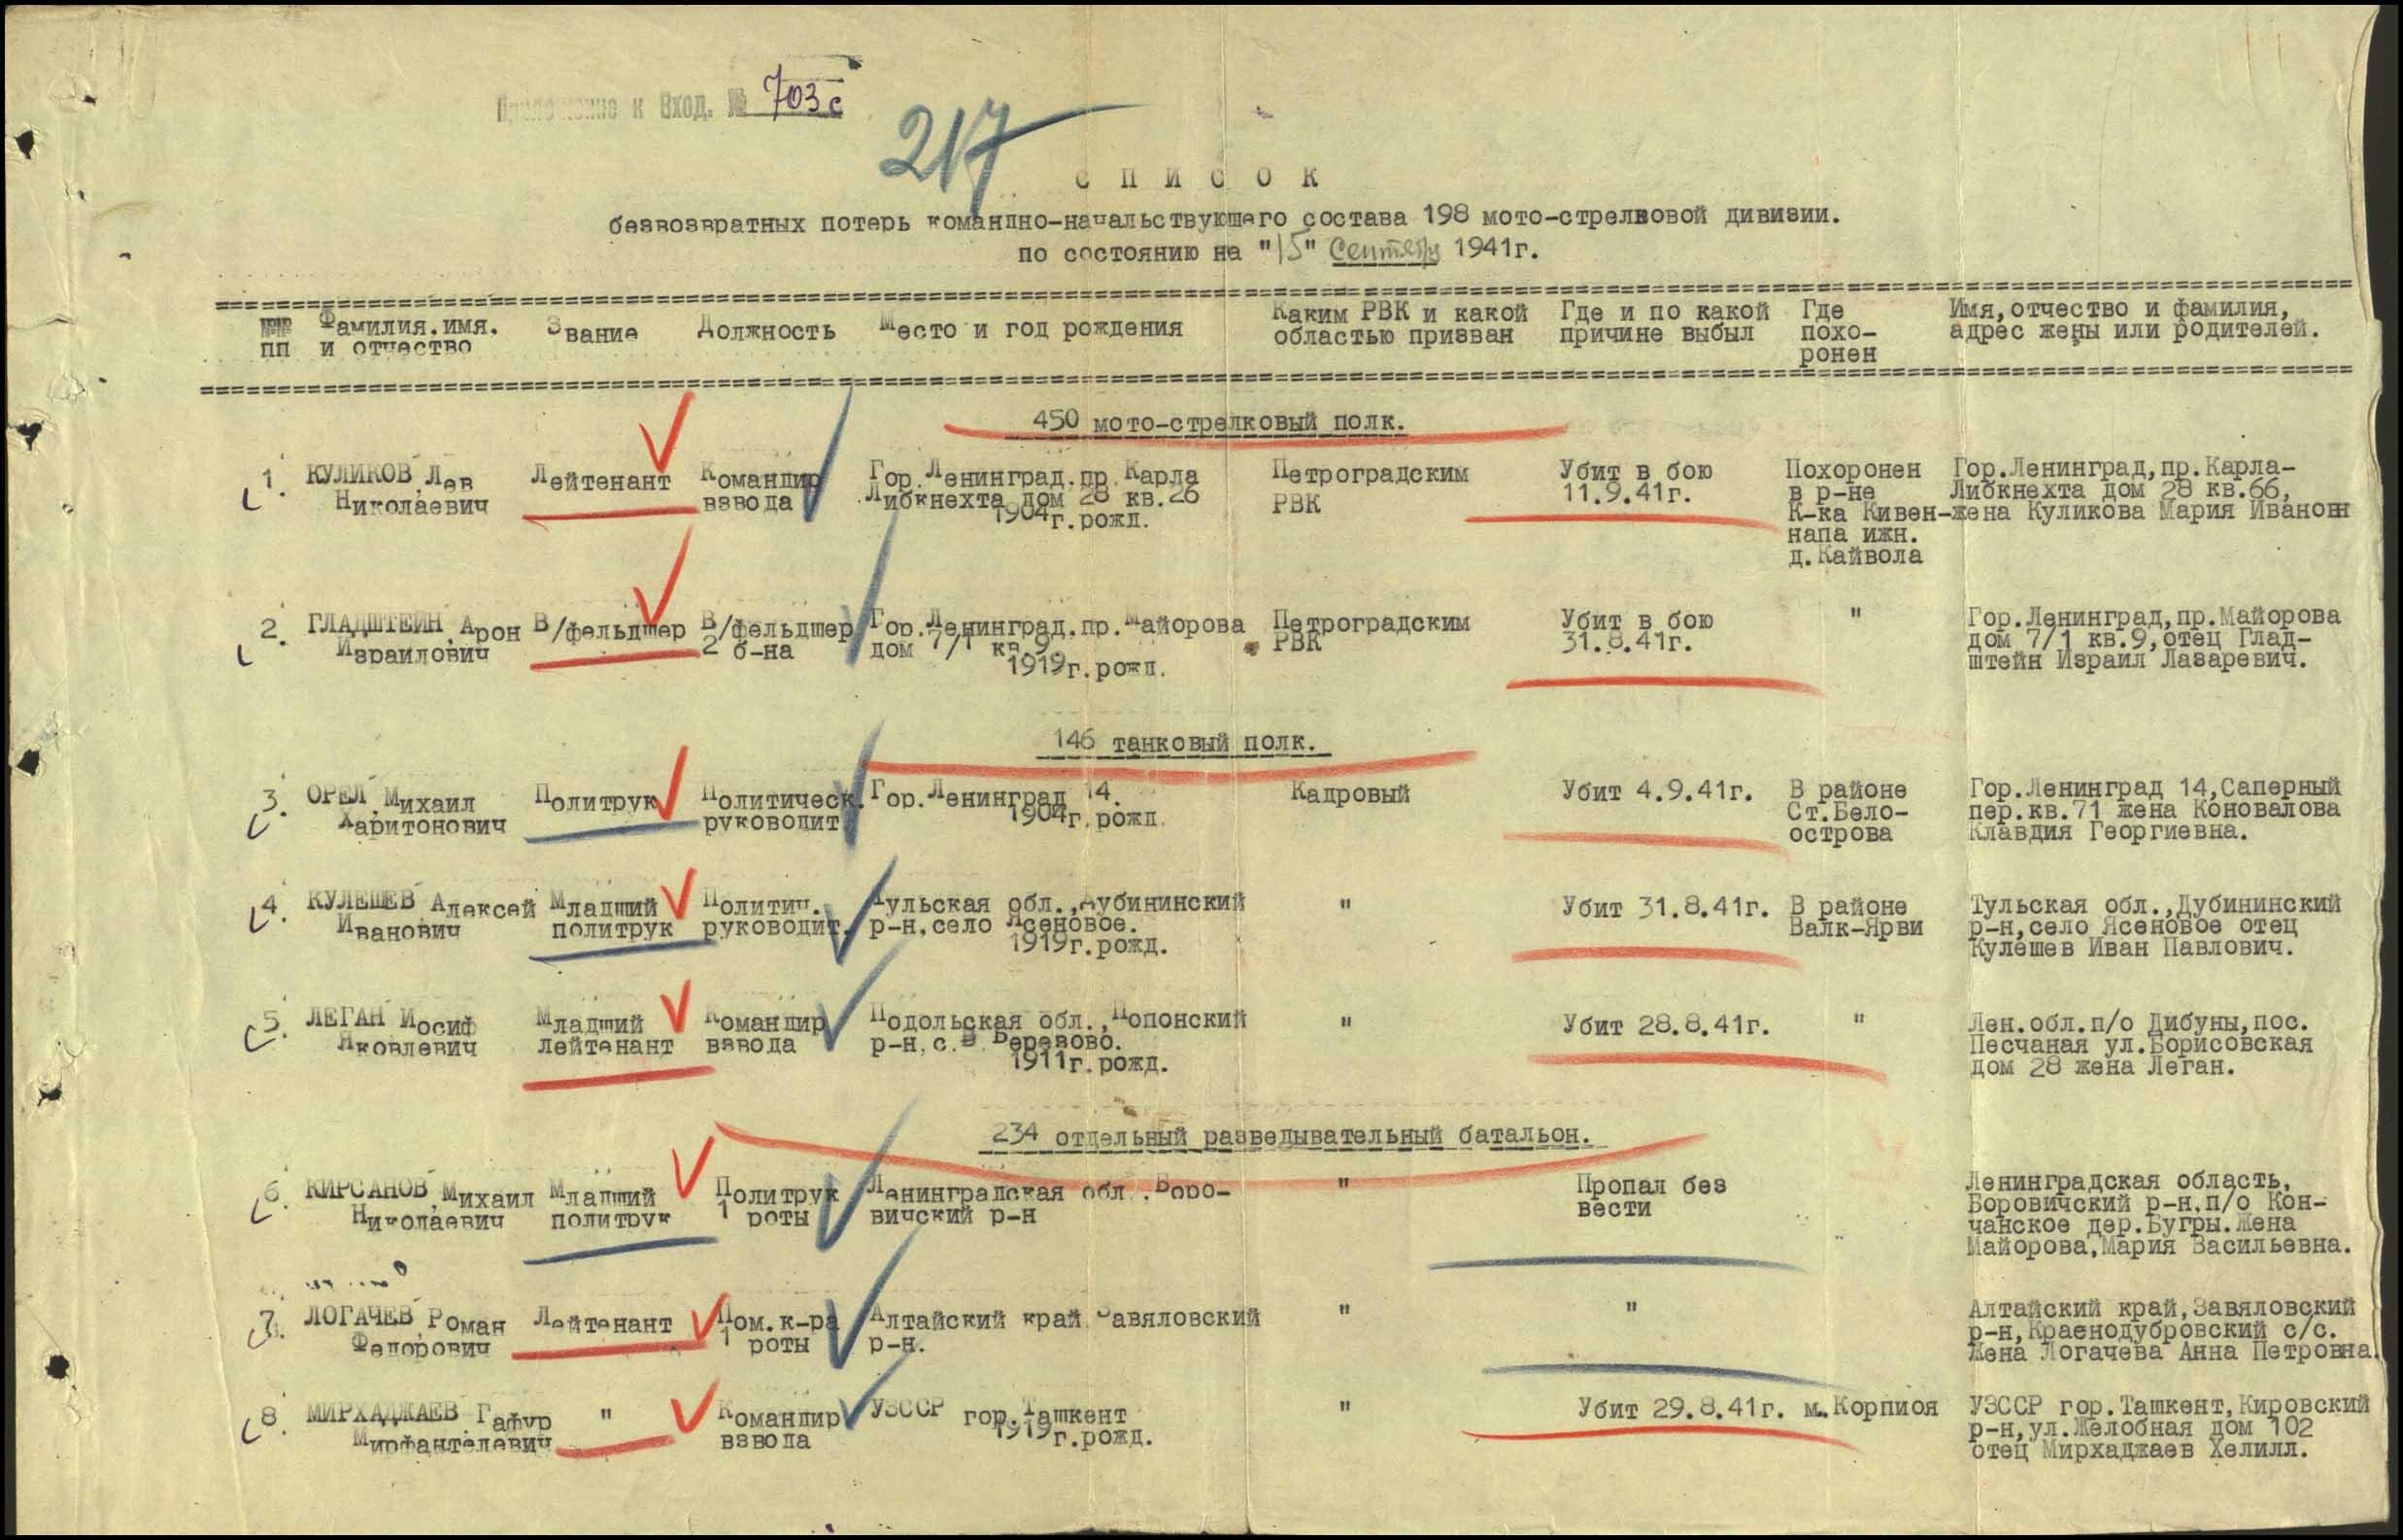 Приложение к Вход. № 703с
217
СПИСОК
безвозвратных потерь командно-начальствующего состава 198 мото-стрелковой дивизии.
по состоянию на "15" Сентября 1941г.
№№ Фамилия.имя. Звание Должность Место и год рождения Каким РВК и какой Где и по какой Где Имя,отчество и фамилия,
пп и отчество областью призван причине выбыл похо- адрес жены или родителей.
ронен
450 мото-стрелковый полк.
1. КУЛИКОВ Лев Лейтенант Командир Гор.Ленинград.пр.Карла Петроградским Убит в бою Похоронен Гор.Ленинград,пр.Карла-
Николаевич взвода Либкнехта дом 28 кв.26 РВК 11.9.41г. в р-не Либкнехта дом 28 кв.66,
1904г.рожд. К-ка Кивен- жена Куликова Мария Иванови
напа ижн.
д.Кайвола
2. ГЛАДШТЕЙН Арон В/фельдшер В/фельдшер Гор.Ленинград.пр.Майорова Петроградским Убит в бою " Гор.Ленинград,пр.Майорова
Израилович 2 б-на дом 7/1 кв.9. РВК 31.8.41г. дом 7/1 кв.9,отец Глад-
1919г.рожд. штейн Израил Лазаревич.
146 танковый полк.
3. ОРЕЛ Михаил Политрук Политическ. Гор.Ленинград 14. Кадровый Убит 4.9.41г. В районе Гор.Ленинград 14,Саперный
Харитонович руководит 1904г.рожд. Ст.Бело- пер.кв.71 жена Коновалова
острова Клавдия Георгиевна.
4. КУЛЕШЕВ Алексей Младший Политич. Тульская обл.,Дубининский " Убит 31.8.41г. В районе Тульская обл.,Дубининский
Иванович политрук руководит. р-н,село Ясеновое. Валк-Ярви р-н,село Ясеновое отец
1919г.рожд. Кулешев Иван Павлович.
5. ЛЕГАН Иосиф Младший Командир Подольская обл.,Попонский " Убит 28.8.41г. " Лен.обл.п/о Дибуны,пос.
Яковлевич лейтенант взвода р-н,с. Березово. Песчаная ул.Борисовская
1911г.рожд. дом 28 жена Леган.
234 отдельный разведывательный батальон.
6. КИРСАНОВ Михаил Младший Политрук Ленинградская обл.,Боро- " Пропал без Ленинградская область,
Николаевич политрук 1 роты вичский р-н вести Боровичский р-н.п/о Кон-
чанское дер.Бугры.Жена
Майорова,Мария Васильевна.
7. ЛОГАЧЕВ Роман Лейтенант Пом.к-ра Алтайский край Завяловский " " Алтайский край,Завяловский
Федорович 1 роты р-н. р-н,Краенодубровский с/с.
Жена Логачева Анна Петровна.
8. МИРХАДЖАЕВ Гафур " Командир УЗССР гор.Ташкент " Убит 29.8.41г. м.Корпиоя УЗССР гор.Ташкент,Кировский
Мирфантелевич взвода 1919г.рожд. р-н,ул.Желобная дом 102
отец Мирхаджаев Хелилл.